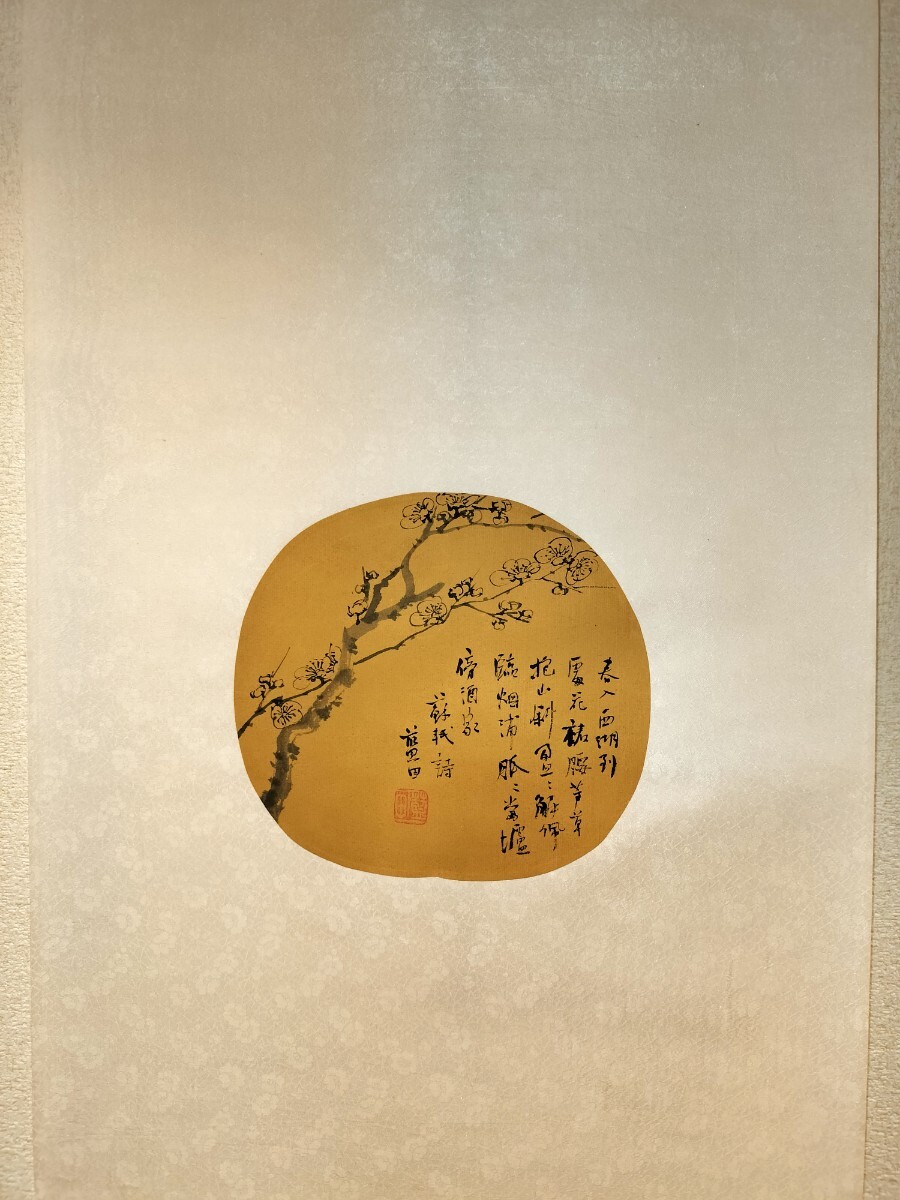 春入西湖到
處花裙腰芳草
抱山斜盈〻解佩
臨烟浦脈〻當壚
傍酒家
蘇軾詩
藍田